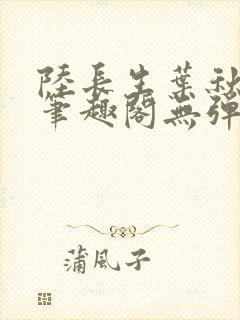 陸長生葉秋
筆趣閣無彈
蒲風子